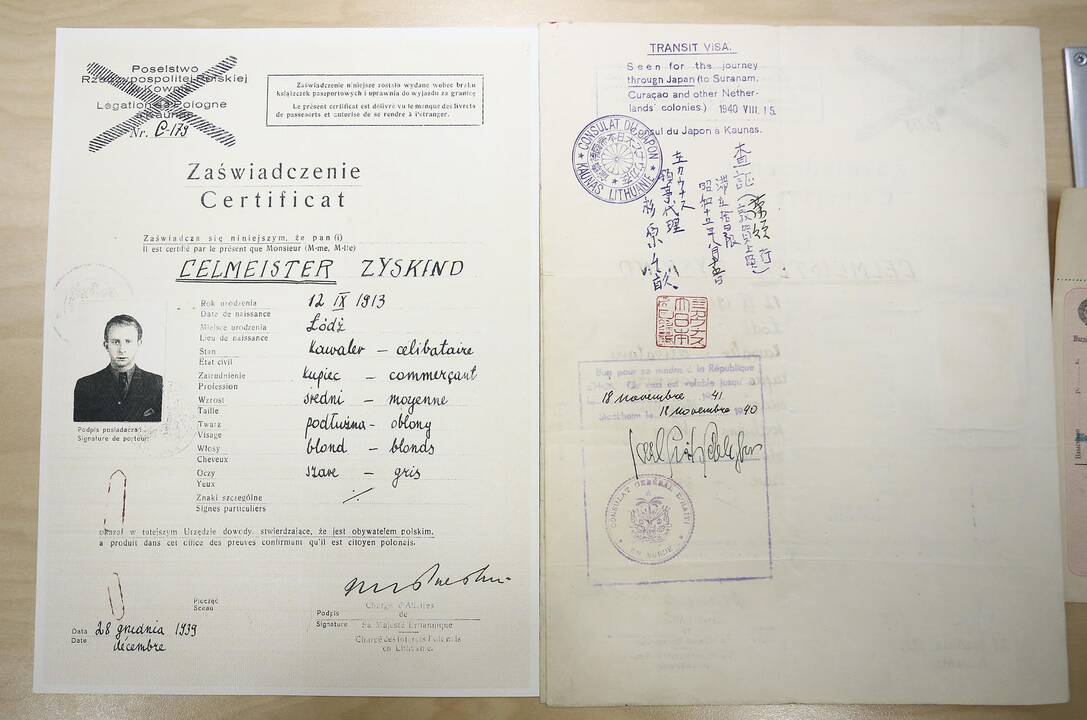 Poselstwo
Rzeczypospolitej Polskiej
Kowno
Legation de Pologne
à Kaunas
Nr. C-179
Zaświadczenie niniejsze zostało wydane wobec braku
książeczek paszportowych i uprawnia do wyjazdu za granicę
Le présent certificat est délivré vu le manque des livrets
de passeports et autorise de se rendre à l'étranger.
Zaświadczenie
Certificat
Zaświadcza się niniejszym, że pan (i)
Il est certifié par le présent que Monsieur (M-me, M-lle)
CELMEISTER ZYSKIND
Rok urodzenia
Date de naissance
12 IX 1913
Miejsce urodzenia
Lieu de naissance
Łódź
Stan
Etat civil
Kawaler – celibataire
Zatrudnienie
Profession
kupiec – commerçant
Wzrost
Taille
średni – moyenne
Twarz
Visage
podłużna – oblong
Włosy
Cheveux
blond – blonds
Oczy
Yeux
szare – gris
Znaki szczególne
Signes particuliers
Podpis posiadacza:
Signature de porteur:
okazał w tutejszym Urzędzie dowody, stwierdzające, że jest obywatelem polskim.
a produit dans cet office des preuves confirmant qu'il est citoyen polonais.
Pieczęć
Sceau
Podpis
Signature
Chargé d'Affaires
de
Sa Majesté Britannique
Chargé des Intérêts Polonais
en Lithuanie.
Data
Date
28 grudnia 1939
décembre
TRANSIT VISA.
Seen for the journey
through Japan (to Suranam,
Curaçao and other Nether-
lands' colonies.) 1940 VIII 15
Consul du Japon à Kaunas.
CONSULAT DU JAPON
KAUNAS LITHUANIE
査証
昭和十五年八月十五日
在カウナス
領事代理
杉原千畝
Bon pour se rendre à la République
18 novembre 1941
Stockholm le 18 novembre 1940
CONSULAT GENERAL D'HAITI
EN SUEDE